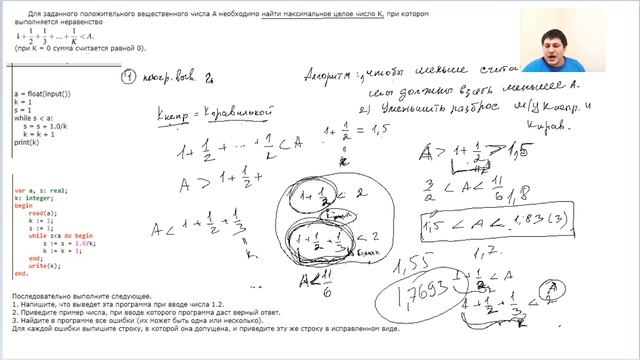 Для заданного положительного вещественного числа A необходимо найти максимальное целое число K, при котором
выполняется неравенство
1 + 1/2 + 1/3 + ... + 1/K < A.
(при K = 0 сумма считается равной 0).
a = float(input())
k = 1
s = 1
while s < a:
s = s + 1.0/k
k = k + 1
print(k)
var a, s: real;
k: integer;
begin
read(a);
k := 1;
s := 1;
while s<a do begin
s := s + 1.0/k;
k := k + 1;
end;
write(k);
end.
Kнепр = Kправильной
1 + 1/2 + ... + 1/2 < A
A > 1 + 1/2 +
A < 1 + 1/2 + 1/3
k
...
Алгоритм: 1) чтобы меньше счита
мы должны взять меньшее A.
2) Уменьшить разброс м/у Kнепр. и
Kправ.
1 + 1/2 = 1,5
1 + 1/2 < 2
1 + 1/2 + 1/3 < 2
A < 11/6
A > 1 + 1/2 > 1,5
3/2 < A < 11/6
1,8
1,5 < A < 1,83(3)
1,55
1,7
1,7693
1 + 1/2 < A
1 + 1/2 + 1/3 <
Последовательно выполните следующее.
1. Напишите, что выведет эта программа при вводе числа 1.2.
2. Приведите пример числа, при вводе которого программа даст верный ответ.
3. Найдите в программе все ошибки (их может быть одна или несколько).
Для каждой ошибки выпишите строку, в которой она допущена, и приведите эту же строку в исправленном виде.